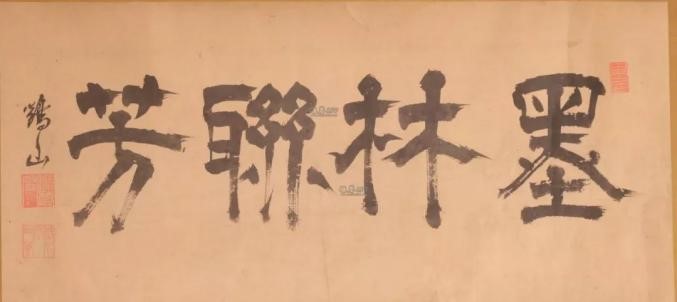 墨林聯芳
鶴山